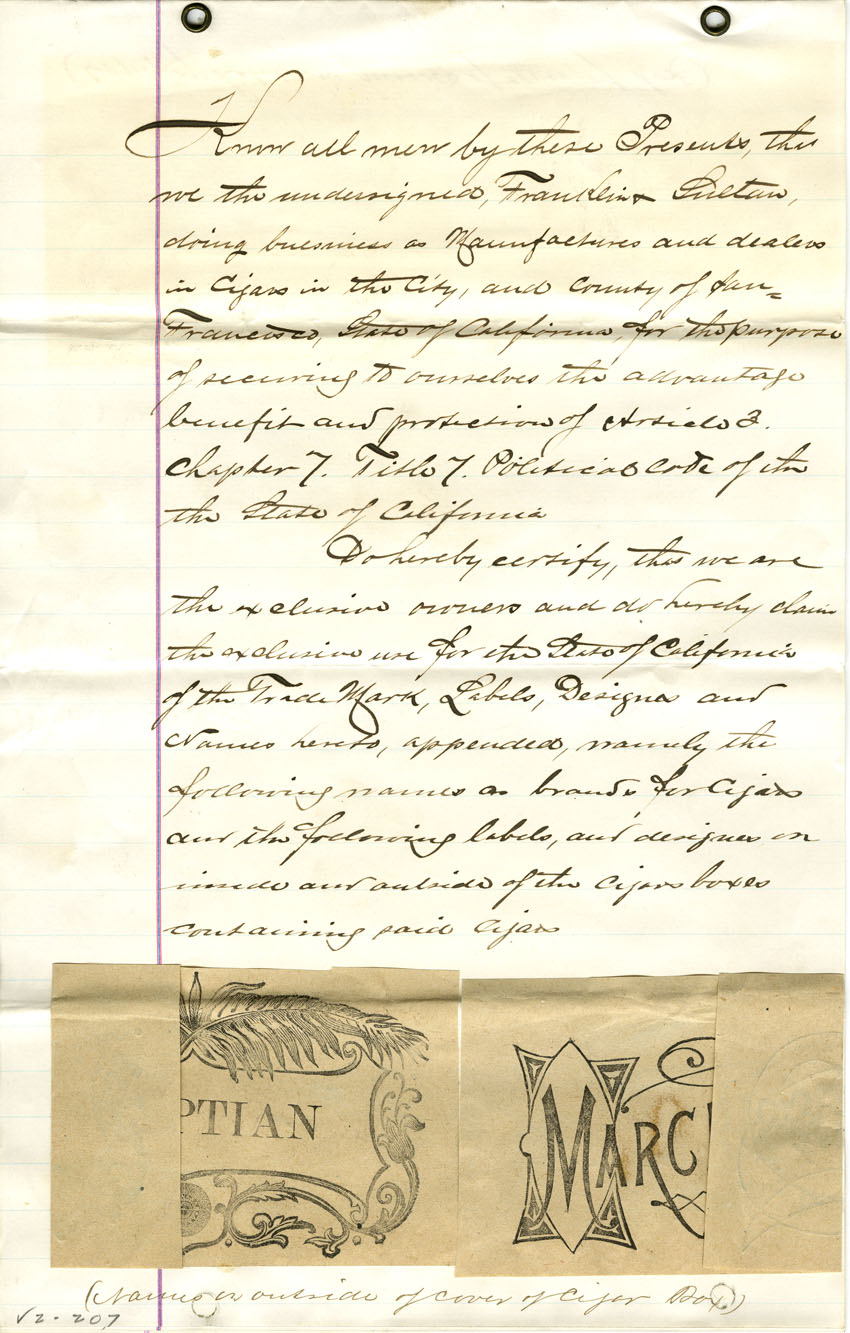 Know all men by these Presents, that
we the undersigned, Franklin & Sultan,
doing buesniess as Maunfactures and dealers
in Cigars in the City, and County of San=
Francisco, State of California, for the purpose
of securing to ourselves the advantage
benefit and protection of Article 3.
Chapter 7. Title 7. Political Code of the
the State of California
Do hereby certify, that we are
the exclusive owners and do hereby claim
the exclusive use for the State of California
of the Trade Mark, Labels, Designes and
Names hereto, appended, namely the
following names as brands for Cigars
and the following labels, and designes on
inside and outside of the Cigars boxes
containing said Cigars
PTIAN
MARC
(Names on outside of cover of Cigar Box)
V2-207